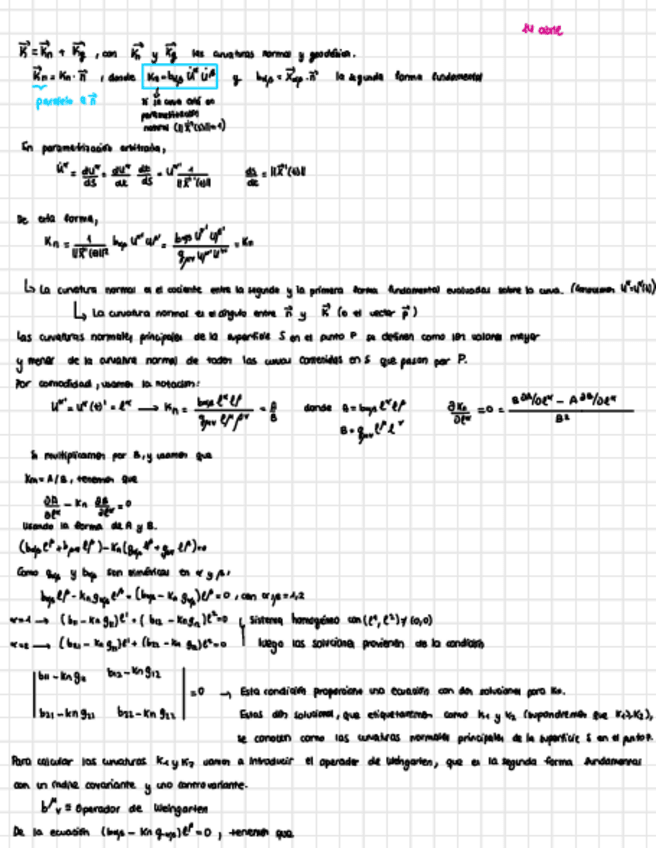 14 abril
K⃗ = K⃗n + K⃗g , con K⃗n y K⃗g las curvaturas normal y geodésica.
K⃗n = Kn · n⃗ , donde Kn = bαβ u̇^α u̇^β y bαβ = X⃗αβ · n⃗ la segunda forma fundamental
paralelo a n⃗
si la curva está en
parametrización
natural (||X⃗'(s)||=1)
En parametrización arbitraria,
u̇^α = du^α/ds = du^α/dt dt/ds = u^α' 1/||X⃗'(t)|| ds/dt = ||X⃗'(t)||
De esta forma,
Kn = 1/||X⃗'(t)||² bαβ u^α' u^β' = bαβ u^α' u^β' / gμν u^μ' u^ν' = Kn
↳ La curvatura normal es el cociente entre la segunda y la primera forma fundamental evaluadas sobre la curva.
↳ La curvatura normal es el ángulo entre n⃗ y K⃗ (o el vector p⃗)
Las curvaturas normales principales de la superficie S en el punto P se definen como los valores mayor
y menor de la curvatura normal de todas las curvas contenidas en S que pasan por P.
Por comodidad, usamos la notación:
u^α' = u^α(t)' = l^α → Kn = bαβ l^α l^β / gμν l^μ l^ν = A/B donde A = bαβ l^α l^β ∂Kn/∂l^α = 0 = (B ∂A/∂l^α − A ∂B/∂l^α) / B²
B = gμν l^μ l^ν
Si multiplicamos por B, y usamos que
Kn = A/B, tenemos que
∂A/∂l^α − Kn ∂B/∂l^α = 0
Usando la forma de A y B.
Como gαβ y bαβ son simétricas en α y β:
bαβ l^β − Kn gαβ l^β = (bαβ − Kn gαβ) l^β = 0 , con α,β = 1,2
α=1 → (b11 − Kn g11) l¹ + (b12 − Kn g12) l² = 0 Sistema homogéneo con (l¹, l²) ≠ (0,0)
α=2 → (b21 − Kn g21) l¹ + (b22 − Kn g22) l² = 0 luego las soluciones provienen de la condición
b11 − Kn g11 b12 − Kn g12
= 0 → Esta condición proporciona una ecuación con dos soluciones para Kn.
b21 − Kn g21 b22 − Kn g22 Estas dos soluciones, que etiquetaremos como K1 y K2 (supondremos que K1>K2),
se conocen como las curvaturas normales principales de la superficie S en el punto P.
Para calcular las curvaturas K1 y K2 vamos a introducir el operador de Weingarten, que es la segunda forma fundamental
con un índice covariante y uno contravariante.
b^μ_ν ≡ Operador de Weingarten
De la ecuación (bαβ − Kn gαβ) l^β = 0 , tenemos que